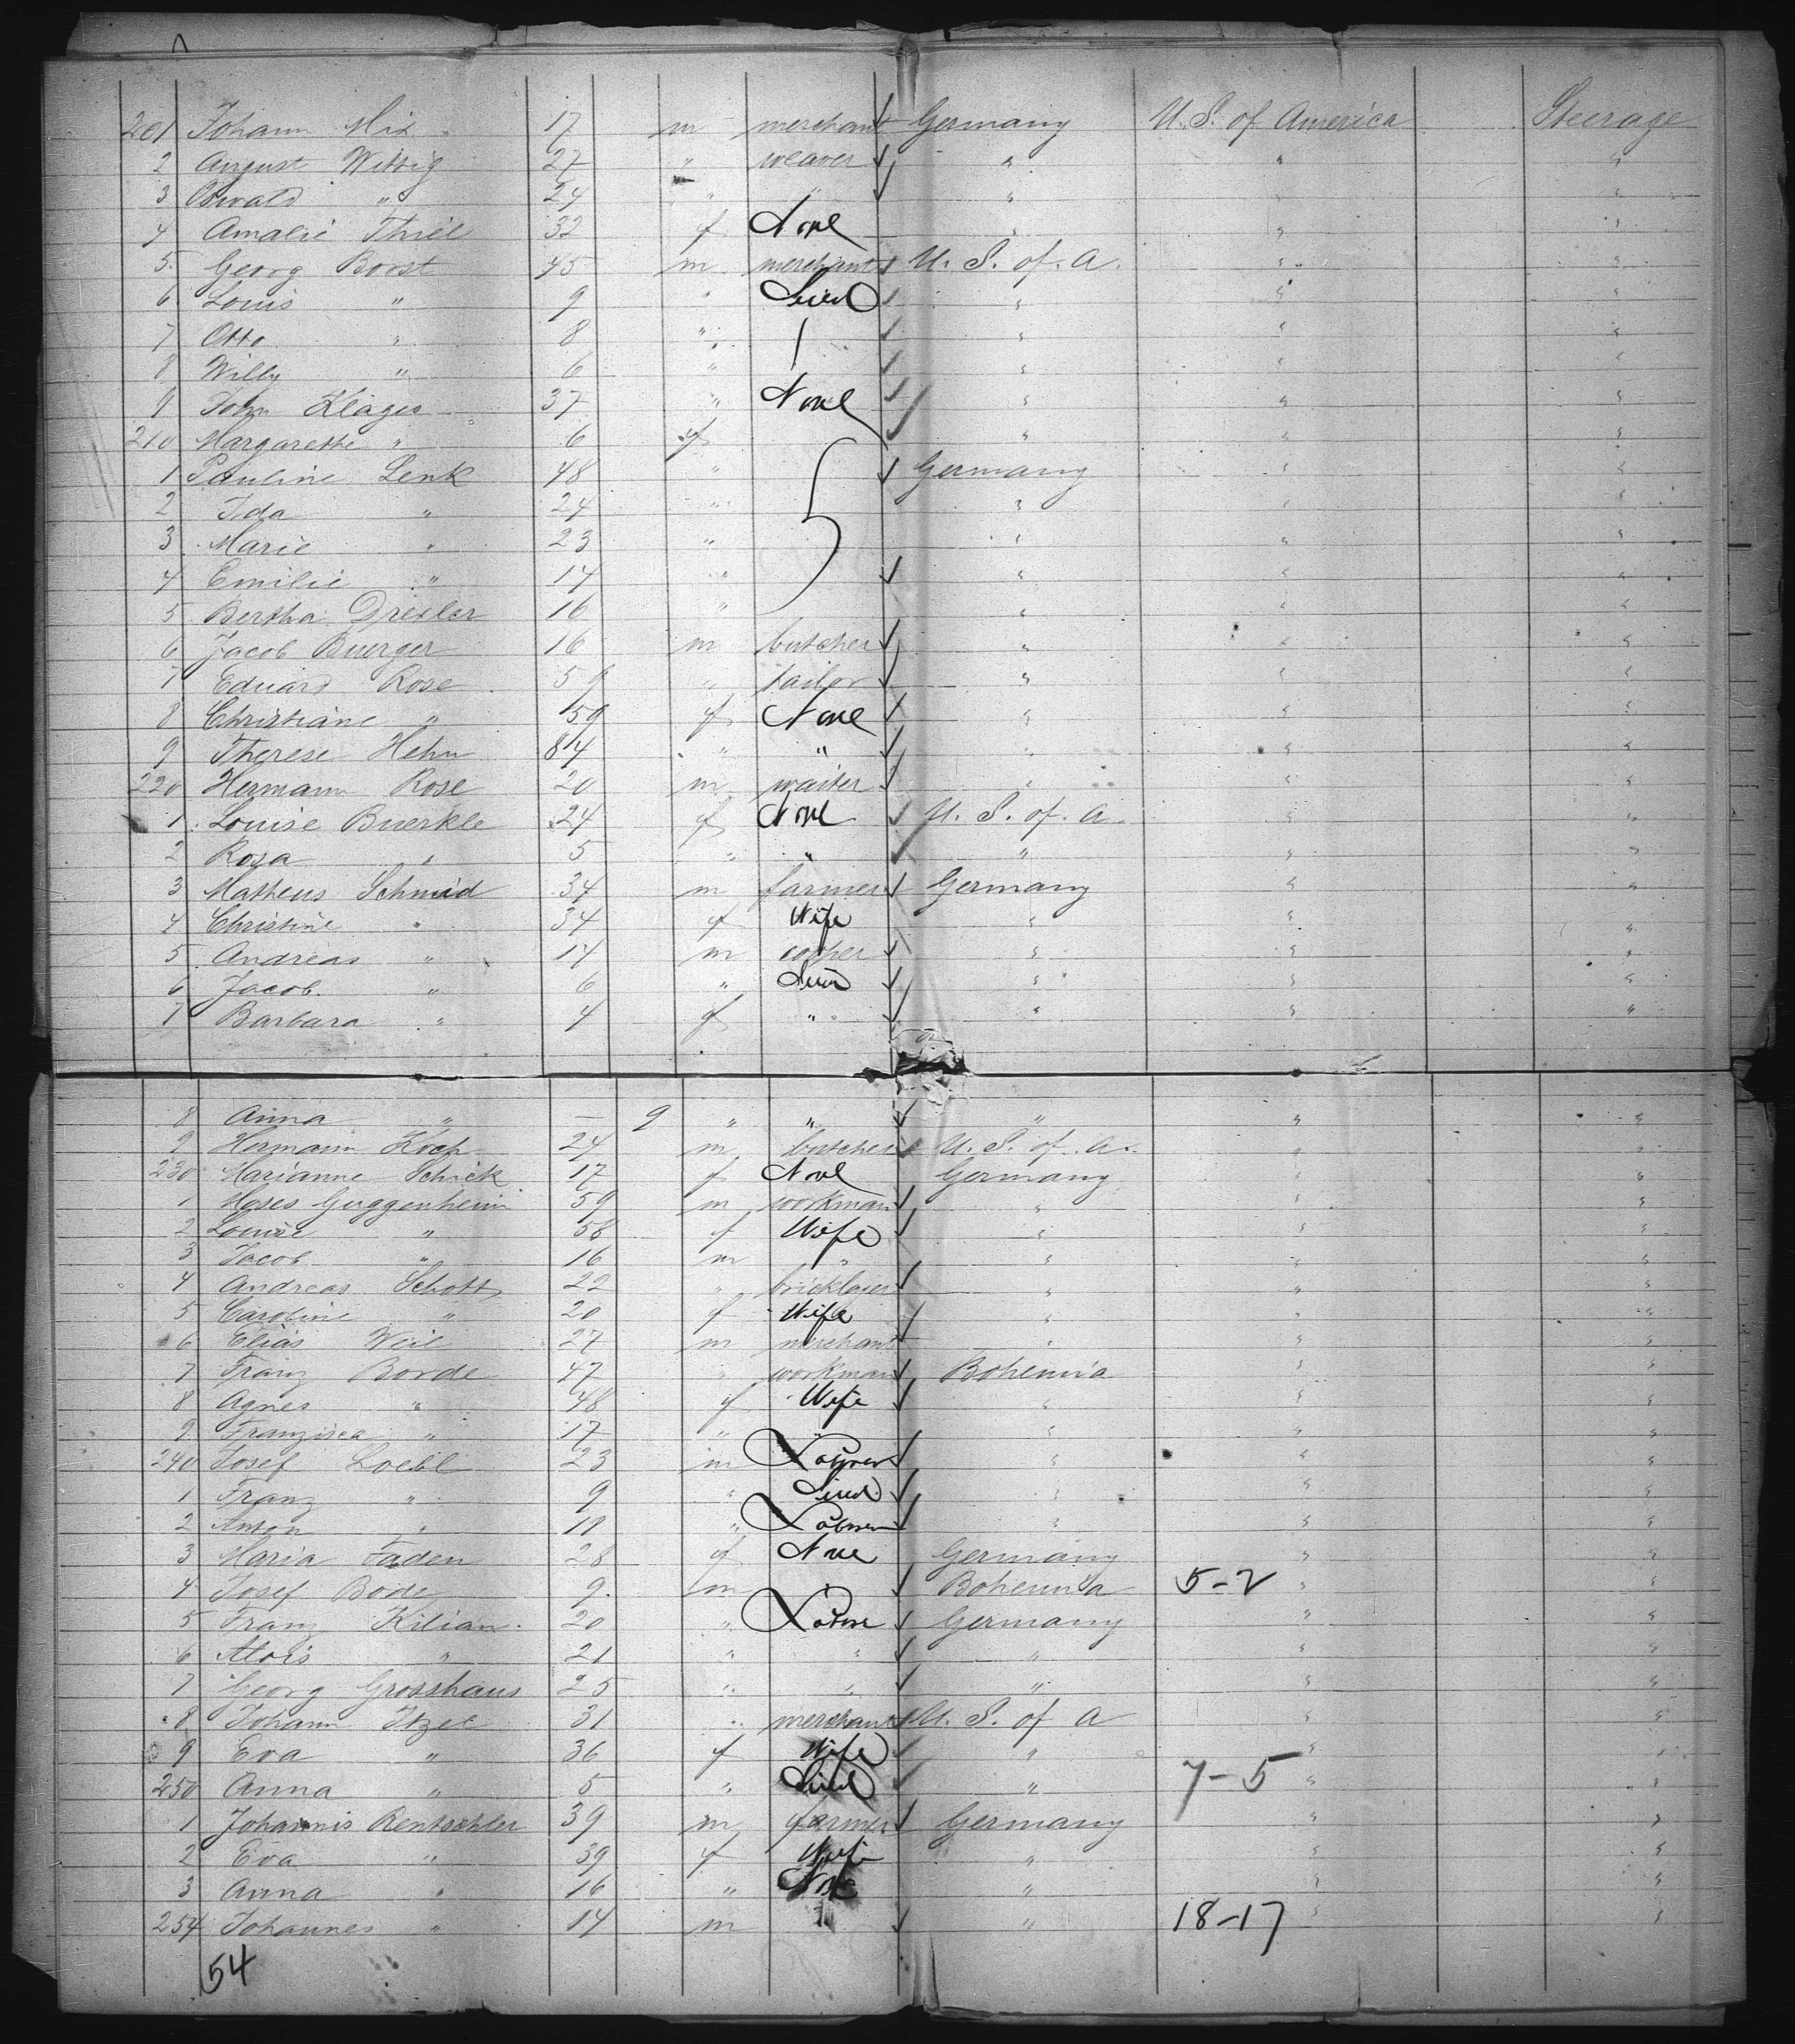 201 Johann Mix 17 m merchant Germany U. S. of America Steerage
2 August Wittig 27 " weaver " " "
3 Oswald " 24 " " " " "
4 Amalie Thiel 32 f None " " "
5 Georg Borst 45 m merchant U. S. of A. " "
6 Louis " 9 " " " "
7 Otto " 8 " " " "
8 Willy " 6 " " " "
9 John Klages 37 " None " " "
210 Margarethe " 6 f " " "
1 Pauline Lenk 48 " Germany " "
2 Ida " 24 " " " "
3 Marie " 23 " " " "
4 Emilie " 14 " " " "
5 Bertha Drexler 16 " " " "
6 Jacob Buerger 16 m butcher " " "
7 Eduard Rose 59 " tailor " " "
8 Christiane " 59 f None " " "
9 Therese Hehn 84 " " " " "
220 Hermann Rose 20 m waiter " " "
1 Louise Buerkle 24 f None U. S. of A. " "
2 Rosa " 5 " " " " "
3 Matheus Schmid 34 m farmer Germany " "
4 Christine " 34 f Wife " " "
5 Andreas " 14 m " " "
6 Jacob " 6 " " " "
7 Barbara " 4 f " " " "
8 Anna " – 9 " " " " "
9 Hermann Koch 24 m butcher U. S. of A. " "
230 Marianne Schick 17 f None Germany " "
1 Moses Guggenheim 59 m workman " " "
2 Louise " 56 f Wife " " "
3 Jacob " 16 m " " " "
4 Andreas Schott 22 " bricklayer " " "
5 Caroline " 20 f Wife " " "
6 Elias Weil 27 m merchant " " "
7 Franz Borde 47 " workman Bohemia " "
8 Agnes " 48 f Wife " " "
9 Franzisca " 17 " " " " "
240 Josef Loebl 23 m Laborer " " "
1 Franz " 9 " " " "
2 Anton " " Laborer " " "
3 Maria Faden 28 f None Germany " "
4 Josef Bode 9 m Bohemia 5-2 " "
5 Franz Kilian 20 " Germany " "
6 Alois " 21 " " " " "
7 Georg Grosshaus 25 " " " " "
8 Johann Itzel 31 " merchant U. S. of A " "
9 Eva " 36 f Wife " " "
250 Anna " 5 " " 7-5 " "
1 Johannis Rentschler 39 m farmer Germany " "
2 Eva " 39 f Wife " " "
3 Anna " 16 " None " " "
254 Johannes " 14 m " 18-17 " "
54